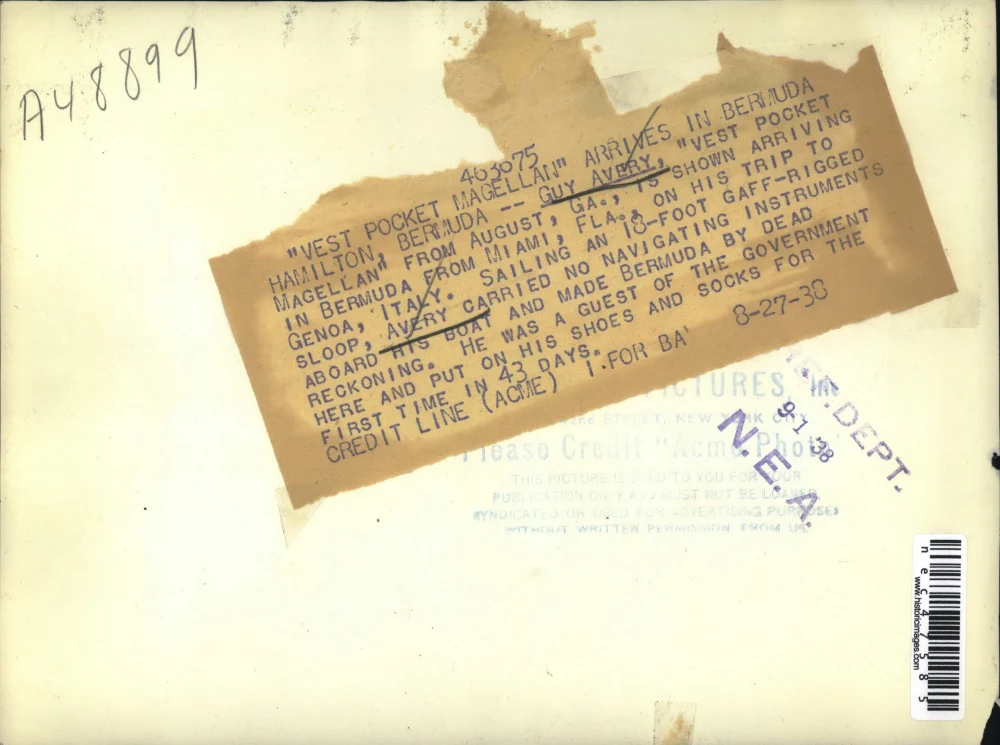 A48899
463675
"VEST POCKET MAGELLAN" ARRIVES IN BERMUDA
HAMILTON, BERMUDA -- GUY AVERY, "VEST POCKET
MAGELLAN" FROM AUGUST, GA., IS SHOWN ARRIVING
IN BERMUDA FROM MIAMI, FLA., ON HIS TRIP TO
GENOA, ITALY. SAILING AN 18-FOOT GAFF-RIGGED
SLOOP, AVERY CARRIED NO NAVIGATING INSTRUMENTS
ABOARD HIS BOAT AND MADE BERMUDA BY DEAD
RECKONING. HE WAS A GUEST OF THE GOVERNMENT
HERE AND PUT ON HIS SHOES AND SOCKS FOR THE
FIRST TIME IN 43 DAYS.
CREDIT LINE (ACME) FOR BA 8-27-38
PICTURES, Inc
STREET, NEW YORK CITY
Please Credit "Acme Photo"
THIS PICTURE IS SOLD TO YOU FOR YOUR
PUBLICATION ONLY AND MUST NOT BE LOANED
SYNDICATED OR USED FOR ADVERTISING PURPOSES
WITHOUT WRITTEN PERMISSION FROM US
REF. DEPT.
9-1 '38
N.E.A.
nec47585
www.historicimages.com